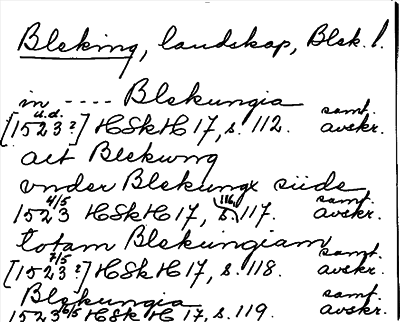 Bleking, landskap, Blek. l.
in ---- Blekungia
u.d. samt.
[1523?] HSkH 17, s. 112. avskr.
ait Blekwng
vnder Blekungx siide
4/5 116, samt.
1523 HSkH 17, s. 117. avskr.
totam Blekungiam
7/5 samt.
[1523?] HSkH 17, s. 118. avskr.
Blekungia samt.
1523 6/5 HSkH 17, s. 119. avskr.